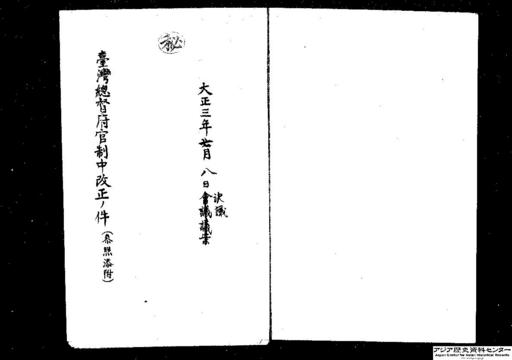 大正三年 月八日會議議案
決議
秘
臺灣總督府官制中改正ノ件(參照添附)
アジア歴史資料センター
Japan Center for Asian Historical Records